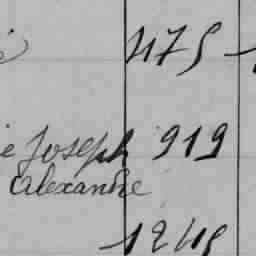 475
e Joseph 919
Alexandre
1245